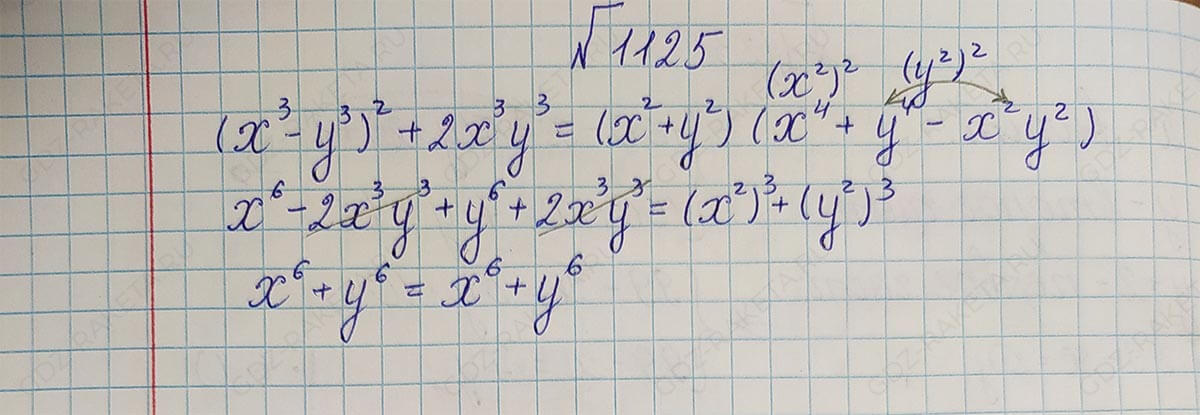 √1125
(x²)² (y²)²
(x³ - y³)² + 2x³y³ = (x² + y²) (x⁴ + y⁴ - x²y²)
x⁶ - 2x³y³ + y⁶ + 2x³y³ = (x²)³ + (y²)³
x⁶ + y⁶ = x⁶ + y⁶
GDZ-RAKETA.RU